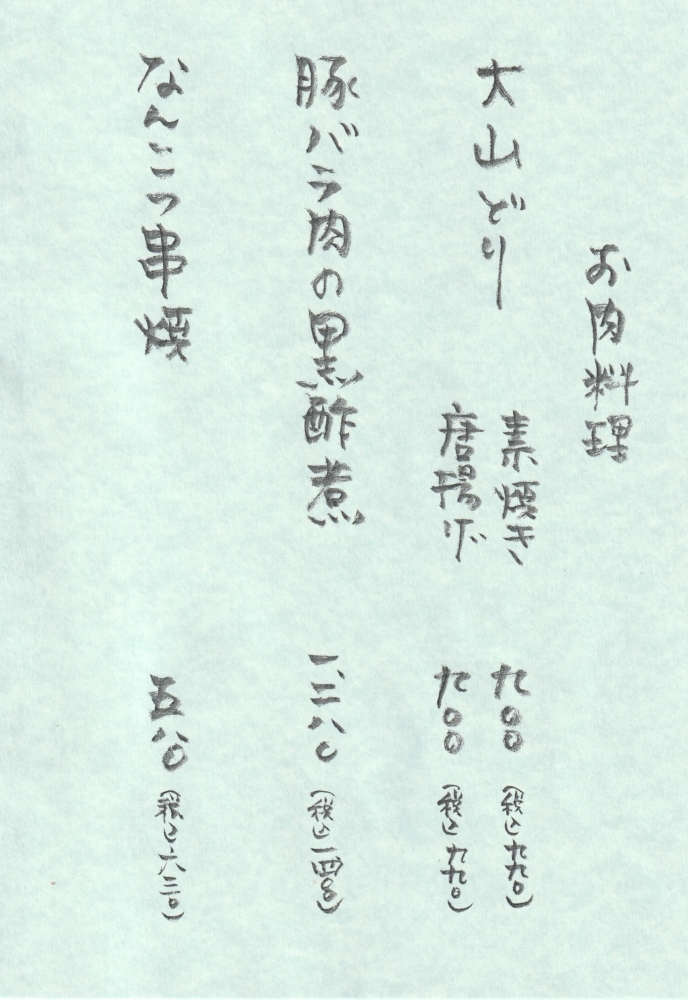 お肉料理
大山どり
素焼き 九〇〇 (税込九九〇)
唐揚げ 九〇〇 (税込九九〇)
豚バラ肉の黒酢煮 一、二八〇 (税込一四〇〇)
なんこつ串焼 五八〇 (税込六三〇)